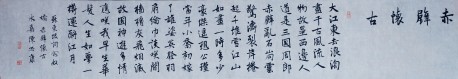 赤壁懷古
大江東去浪淘
盡千古風流人
物故壘西邊人
道是三國周郎
赤壁亂石崩雲
驚濤裂岸捲
起千堆雪江山
如畫一時多少
豪傑遙想公瑾
當年小喬初嫁
了雄姿英發羽
扇綸巾談笑間
檣櫓灰飛煙滅
故國神遊多情
應笑我早生華
髮人生如夢一
樽還酹江月
蘇東坡詞念奴
嬌赤壁懷古